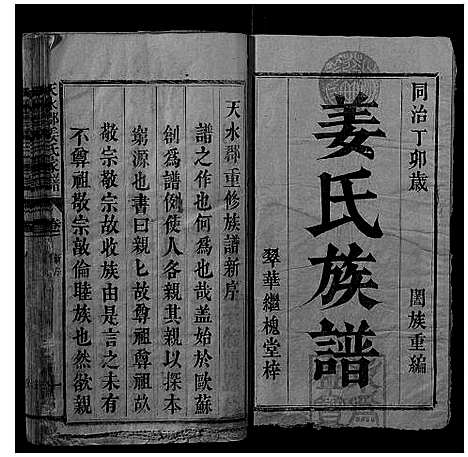 同治丁卯歲
闔族重編
姜氏族譜
翠華繼槐堂梓
天水郡重修族譜新序
譜之作也何爲也哉蓋始於歐蘇
創爲譜例使人各親其親以探本
窮源也書曰親乚故尊祖尊祖故
敬宗敬宗故收族由是言之未有
不尊祖敬宗敌倫睦族也然欲親
天水郡姜氏家譜